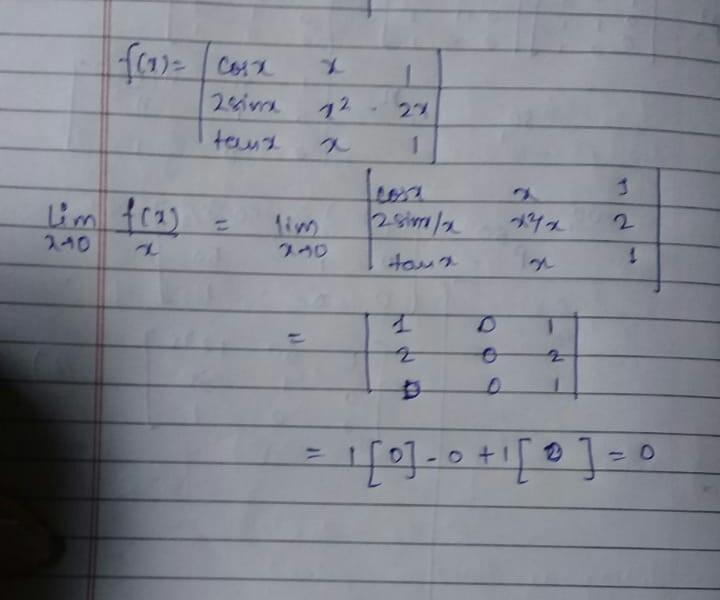 f(x)= | cosx x 1 |
| 2sinx x² 2x |
| tanx x 1 |
lim x→0 f(x)/x = lim x→0 | cosx x 1 |
| 2sinx/x x²/x 2 |
| tanx x 1 |
= | 1 0 1 |
| 2 0 2 |
| 0 0 1 |
= 1[0]-0+1[0]=0